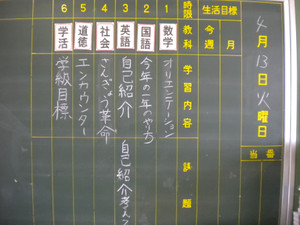 4月13日火曜日
当番
生活目標
月
今週
時限 教科 学習内容 課題
1 数学 オリエンテーション
2 国語 今年の一年のやくち
3 英語 自己紹介 自己紹介考える
4 社会 さんぎょう革命
5 道徳 エンカウンター
6 学活 学級目標